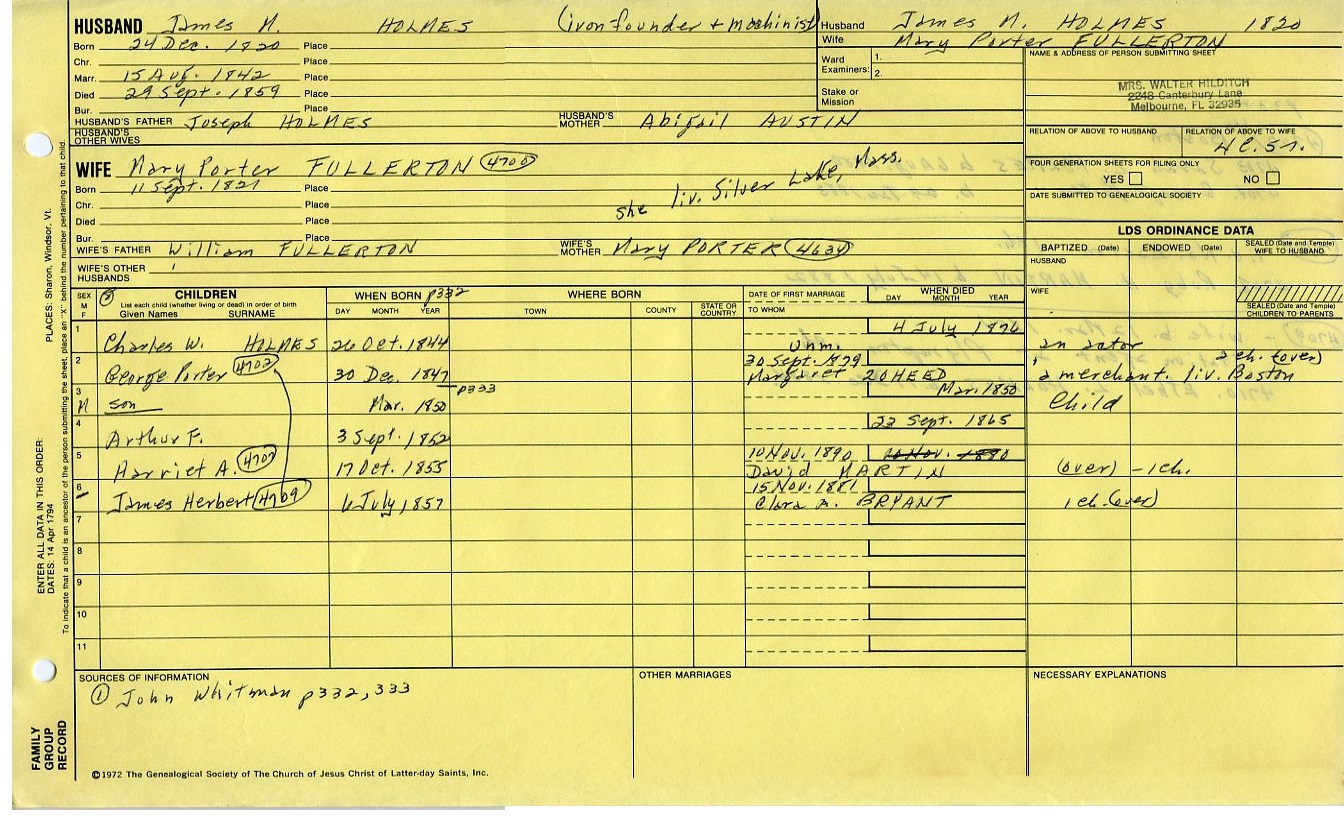 HUSBAND James M. HOLMES (iron founder + machinist)
Born 24 Dec. 1820 Place
Chr. Place
Marr. 15 Aug. 1842 Place
Died 29 Sept. 1859 Place
Bur. Place
HUSBAND'S FATHER Joseph HOLMES HUSBAND'S MOTHER Abigail AUSTIN
HUSBAND'S OTHER WIVES
Husband James M. HOLMES 1820
Wife Mary Porter FULLERTON
Ward Examiners: 1.
2.
Stake or Mission
NAME & ADDRESS OF PERSON SUBMITTING SHEET
MRS. WALTER HILDITCH
2248 Canterbury Lane
Melbourne, FL 32935
RELATION OF ABOVE TO HUSBAND RELATION OF ABOVE TO WIFE
FOUR GENERATION SHEETS FOR FILING ONLY
YES NO
DATE SUBMITTED TO GENEALOGICAL SOCIETY
WIFE Mary Porter FULLERTON 4700
Born 11 Sept. 1821 Place
Chr. Place
Died Place
Bur. Place
she liv. Silver Lake, Mass.
WIFE'S FATHER William FULLERTON WIFE'S MOTHER Mary PORTER 4634
WIFE'S OTHER HUSBANDS
LDS ORDINANCE DATA
BAPTIZED (Date) ENDOWED (Date) SEALED (Date and Temple) WIFE TO HUSBAND
HUSBAND
WIFE
SEALED (Date and Temple) CHILDREN TO PARENTS
SEX M F CHILDREN WHEN BORN p332 WHERE BORN DATE OF FIRST MARRIAGE WHEN DIED
List each child (whether living or dead) in order of birth
Given Names SURNAME DAY MONTH YEAR TOWN COUNTY STATE OR COUNTRY TO WHOM DAY MONTH YEAR
1 Charles W. HOLMES 26 Oct. 1844 Unm. 4 July 1876
2 George Porter 4702 30 Dec. 1847 30 Sept. 1879 2 ch. (over)
a merchant. liv. Boston
p333
3 M son Mar. 1850 Mar. 1850 Child
4 Arthur F. 3 Sept. 1852 22 Sept. 1865
5 Harriet A. 4707 17 Oct. 1855 10 Nov. 1890 10 Nov. 1890
David MARTIN (over) - 1 ch.
6 James Herbert 4709 6 July, 1857 15 Nov. 1881
Clara A. BRYANT 1 ch. (over)
7
8
9
10
11
SOURCES OF INFORMATION
① John Whitman p332, 333
OTHER MARRIAGES
NECESSARY EXPLANATIONS
©1972 The Genealogical Society of The Church of Jesus Christ of Latter-day Saints, Inc.
FAMILY GROUP RECORD
ENTER ALL DATA IN THIS ORDER:
DATES: 14 Apr 1794
PLACES: Sharon, Windsor, Vt.
To indicate that a child is an ancestor of the person submitting the sheet, place an "X" behind the number pertaining to that child.